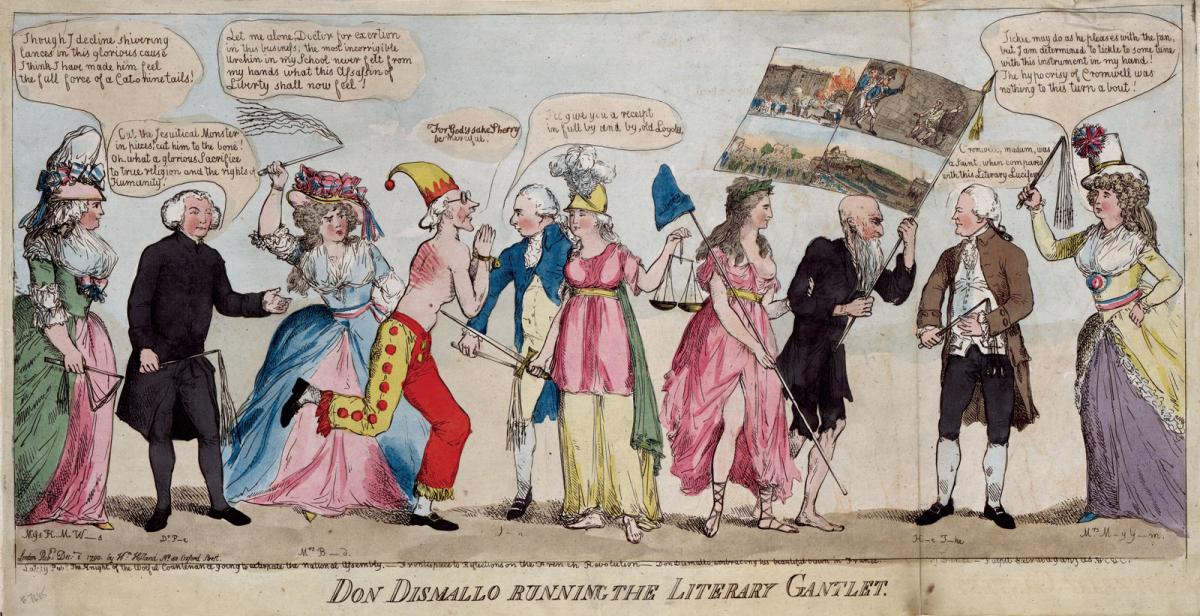 Though I decline shivering
lances in this glorious cause
I think I have made him feel
the full force of a Cat o nine tails!
Let me alone, Doctor for exertion
in this business, the most incorrigible
Urchin in my School never felt from
my hands what this Assassin of
Liberty shall now feel!
Cut, the Jesuitical Monster
in pieces, cut him to the bone!
Oh, what a glorious Sacrifice
to true religion and the rights of
Humanity!
For God's sake Sherry
be merciful.
I'll give you a receipt
in full by and by, old Loyola
Tickle may do as he pleases with the fan,
but I am determined to tickle to some tune
with this instrument in my hand!
The hypocrisy of Cromwell was
nothing to this turn about!
Cromwell, madam, was
a Saint, when compared
with this Literary Lucifer
Miss H. M. W—s
Dr. P—e
Mrs. B—d.
H—e T—ke
Mrs. M—y Y—m.
London Pub. Dec. 1 1790. by Wm. Holland No. 50 Oxford Street.
The Knight of the Woful Countenance going to extirpate the National Assembly. Frontispiece to Reflections on the French Revolution — Don Dismallo embracing his beautiful in France
DON DISMALLO RUNNING THE LITERARY GANTLET.